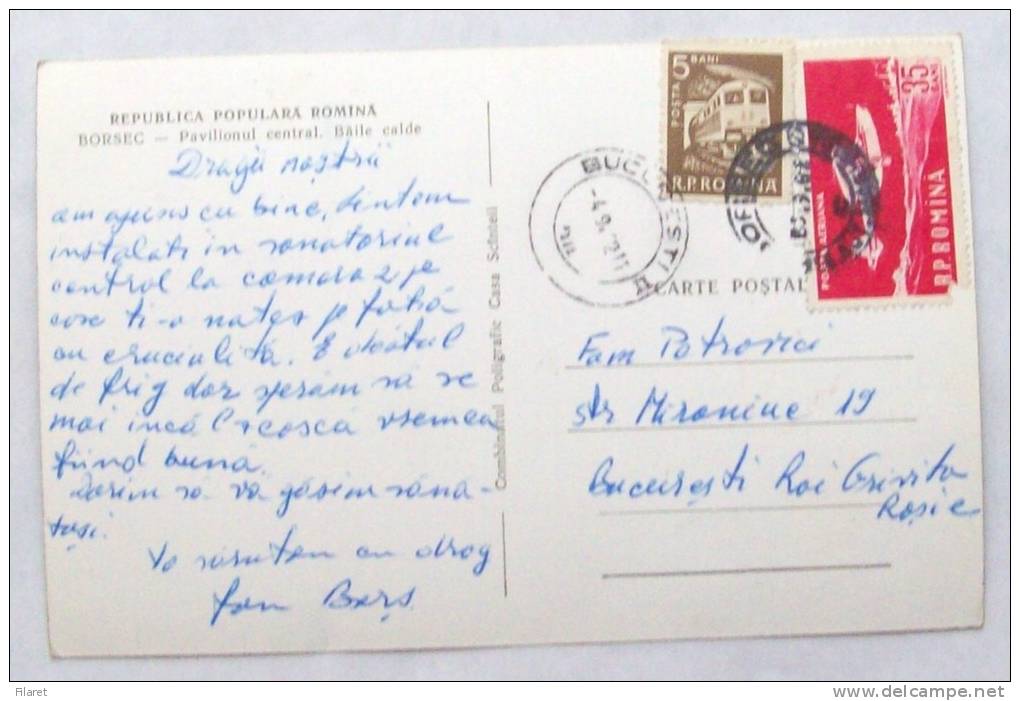 REPUBLICA POPULARĂ ROMINĂ
BORSEC — Pavilionul central. Băile calde
Dragii noștrii
am ajuns cu bine, sîntem
instalati in sanatoriul
central la camera 2 pe
care ti-o notez pe față
cu cruciuliță. E destul
de frig dar sperăm să se
mai încălzească vremea
fiind bună.
Dorim să vă găsim sănă-
toși.
Va sărutăm cu drag
Fam Borș
Combinatul Poligrafic Casa Scînteii
5 BANI
POSTA
R.P.ROMINA
35 BANI
POSTA AERIANA
R.P.ROMINĂ
BUCURESTI
-4.9.
CARTE POȘTAL
Fam Petrovici
str Mironiuc 19
București Rai Grivita
Roșie
Filaret
www.delcampe.net